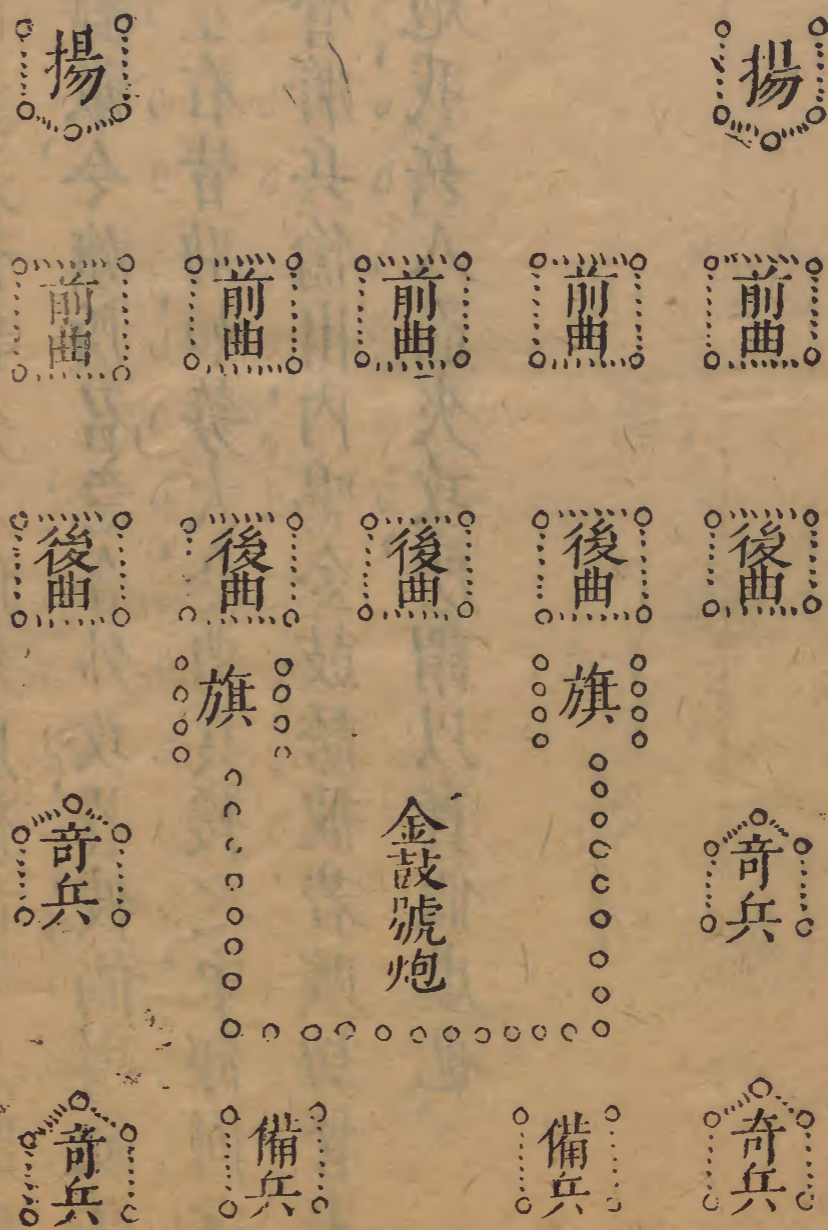 揚 揚
前曲 前曲 前曲 前曲 前曲
後曲 後曲 後曲 後曲 後曲
旗 旗
金鼓號炮
奇兵 奇兵
奇兵 備兵 備兵 奇兵